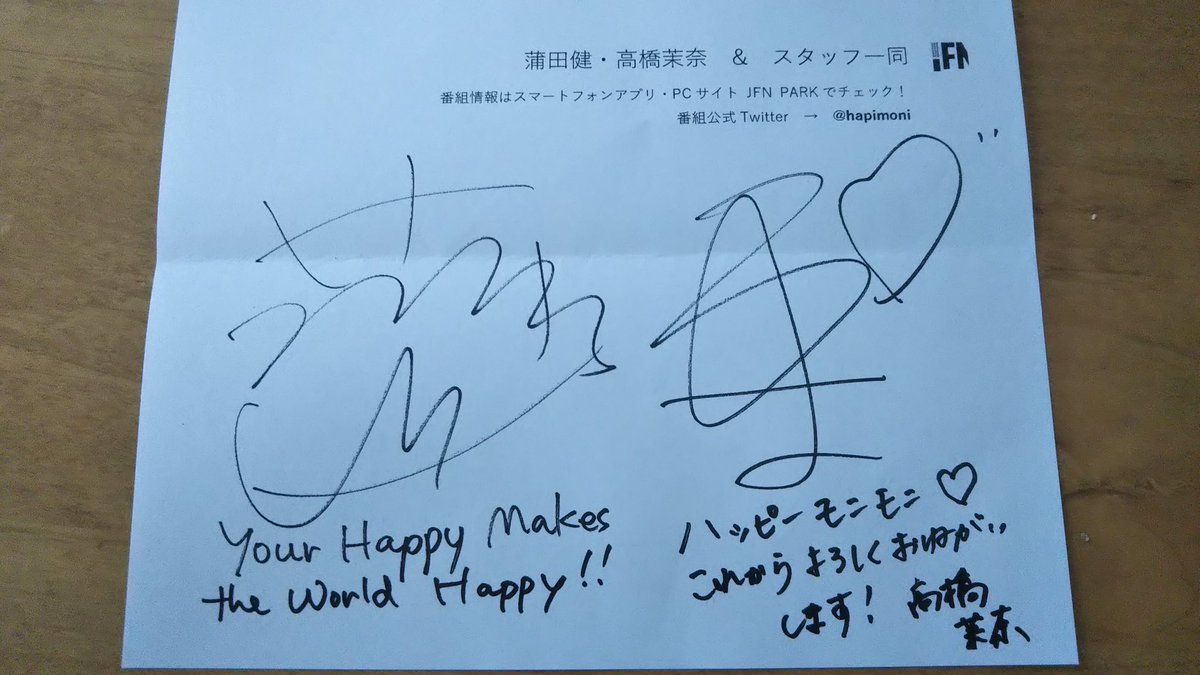 蒲田健・高橋茉奈 & スタッフ一同 JFN
番組情報はスマートフォンアプリ・PCサイト JFN PARKでチェック！
番組公式Twitter → @hapimoni
Your Happy Makes
the World Happy!!
ハッピーモニモニ♡
これからよろしくおねがい
します！ 高橋
茉奈